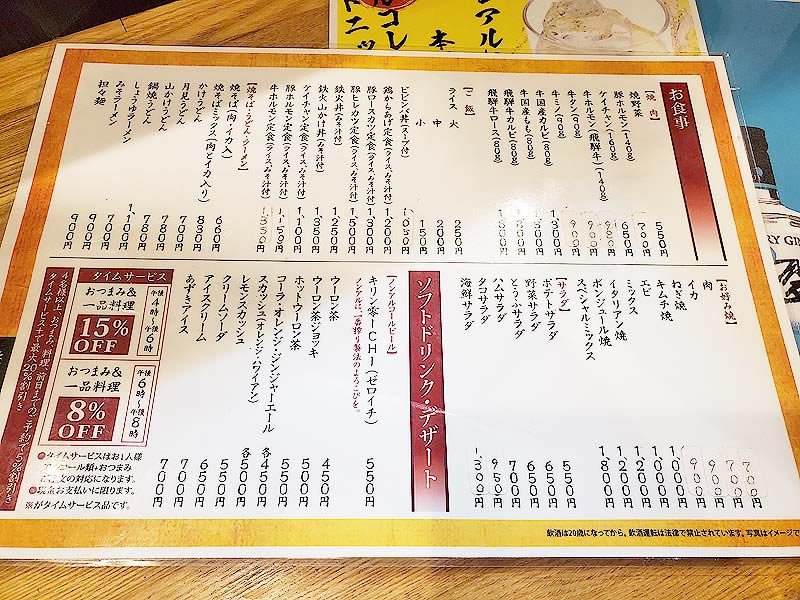 お食事
【焼肉】
焼野菜 550円
豚ホルモン(140g) 700円
ケイチャン(160g) 650円
牛ホルモン(飛騨牛)(140g)
牛タン(90g) 900円
牛ミノ(90g) 900円
牛国産カルビ(80g) 1,300円
牛国産もも(80g) 1,300円
飛騨牛カルビ(80g) 1,800円
飛騨牛ロース(80g) 1,800円
【ご飯】
ライス 大 250円
中 200円
小 150円
ビビンバ丼(スープ付) 1,050円
鶏からあげ定食(ライス、みそ汁付) 1,200円
豚ロースカツ定食(ライス、みそ汁付) 1,300円
豚ヒレカツ定食(ライス、みそ汁付) 1,500円
鉄火丼(みそ汁付) 1,250円
鉄火山かけ丼(みそ汁付) 1,350円
ケイチャン定食(ライス、みそ汁付) 1,100円
豚ホルモン定食(ライス、みそ汁付) 1,150円
牛ホルモン定食(ライス、みそ汁付) 1,350円
【焼そば・うどん・ラーメン】
焼そば(肉・イカ入) 660円
焼そばミックス(肉とイカ入り) 830円
かけうどん 700円
月見うどん 780円
山かけうどん 780円
鍋焼うどん 1,100円
しょうゆラーメン 700円
みそラーメン 900円
担々麺 900円
【お好み焼】
肉 700円
イカ 700円
ねぎ焼 900円
キムチ 900円
エビ 1,000円
ミックス 1,000円
イタリアン焼 1,200円
ボンジュール焼 1,200円
スペシャルミックス 1,800円
【サラダ】
ポテトサラダ 550円
野菜サラダ 650円
とうふサラダ 650円
ハムサラダ 700円
タコサラダ 950円
海鮮サラダ 1,300円
ソフトドリンク・デザート
【ノンアルコールビール】
キリン零ICHI(ゼロイチ) 550円
ノンアルに、一番搾り製法のよろこびを。
ウーロン茶 450円
ウーロン茶ジョッキ 550円
ホットウーロン茶 500円
コーラ・オレンジ・ジンジャーエール 各450円
スカッシュ(オレンジ・ハワイアン) 各500円
レモンスカッシュ 650円
クリームソーダ 650円
アイスクリーム 700円
あずきアイス 700円
タイムサービス
午後4時〜午後6時
おつまみ&
一品料理
15%
OFF
午後6時〜午後8時
おつまみ&
一品料理
8%
OFF
●タイムサービスはお1人様
アルコール類+おつまみ
ご注文の対応になります。
●現金お支払いに限ります。
※がタイムサービス品です。
4名様以上、おつまみ、料理、前日までのご予約で5%割引き
タイムサービスまで最大20%割引き
飲酒は20歳になってから。飲酒運転は法律で禁止されています。写真はイメージで